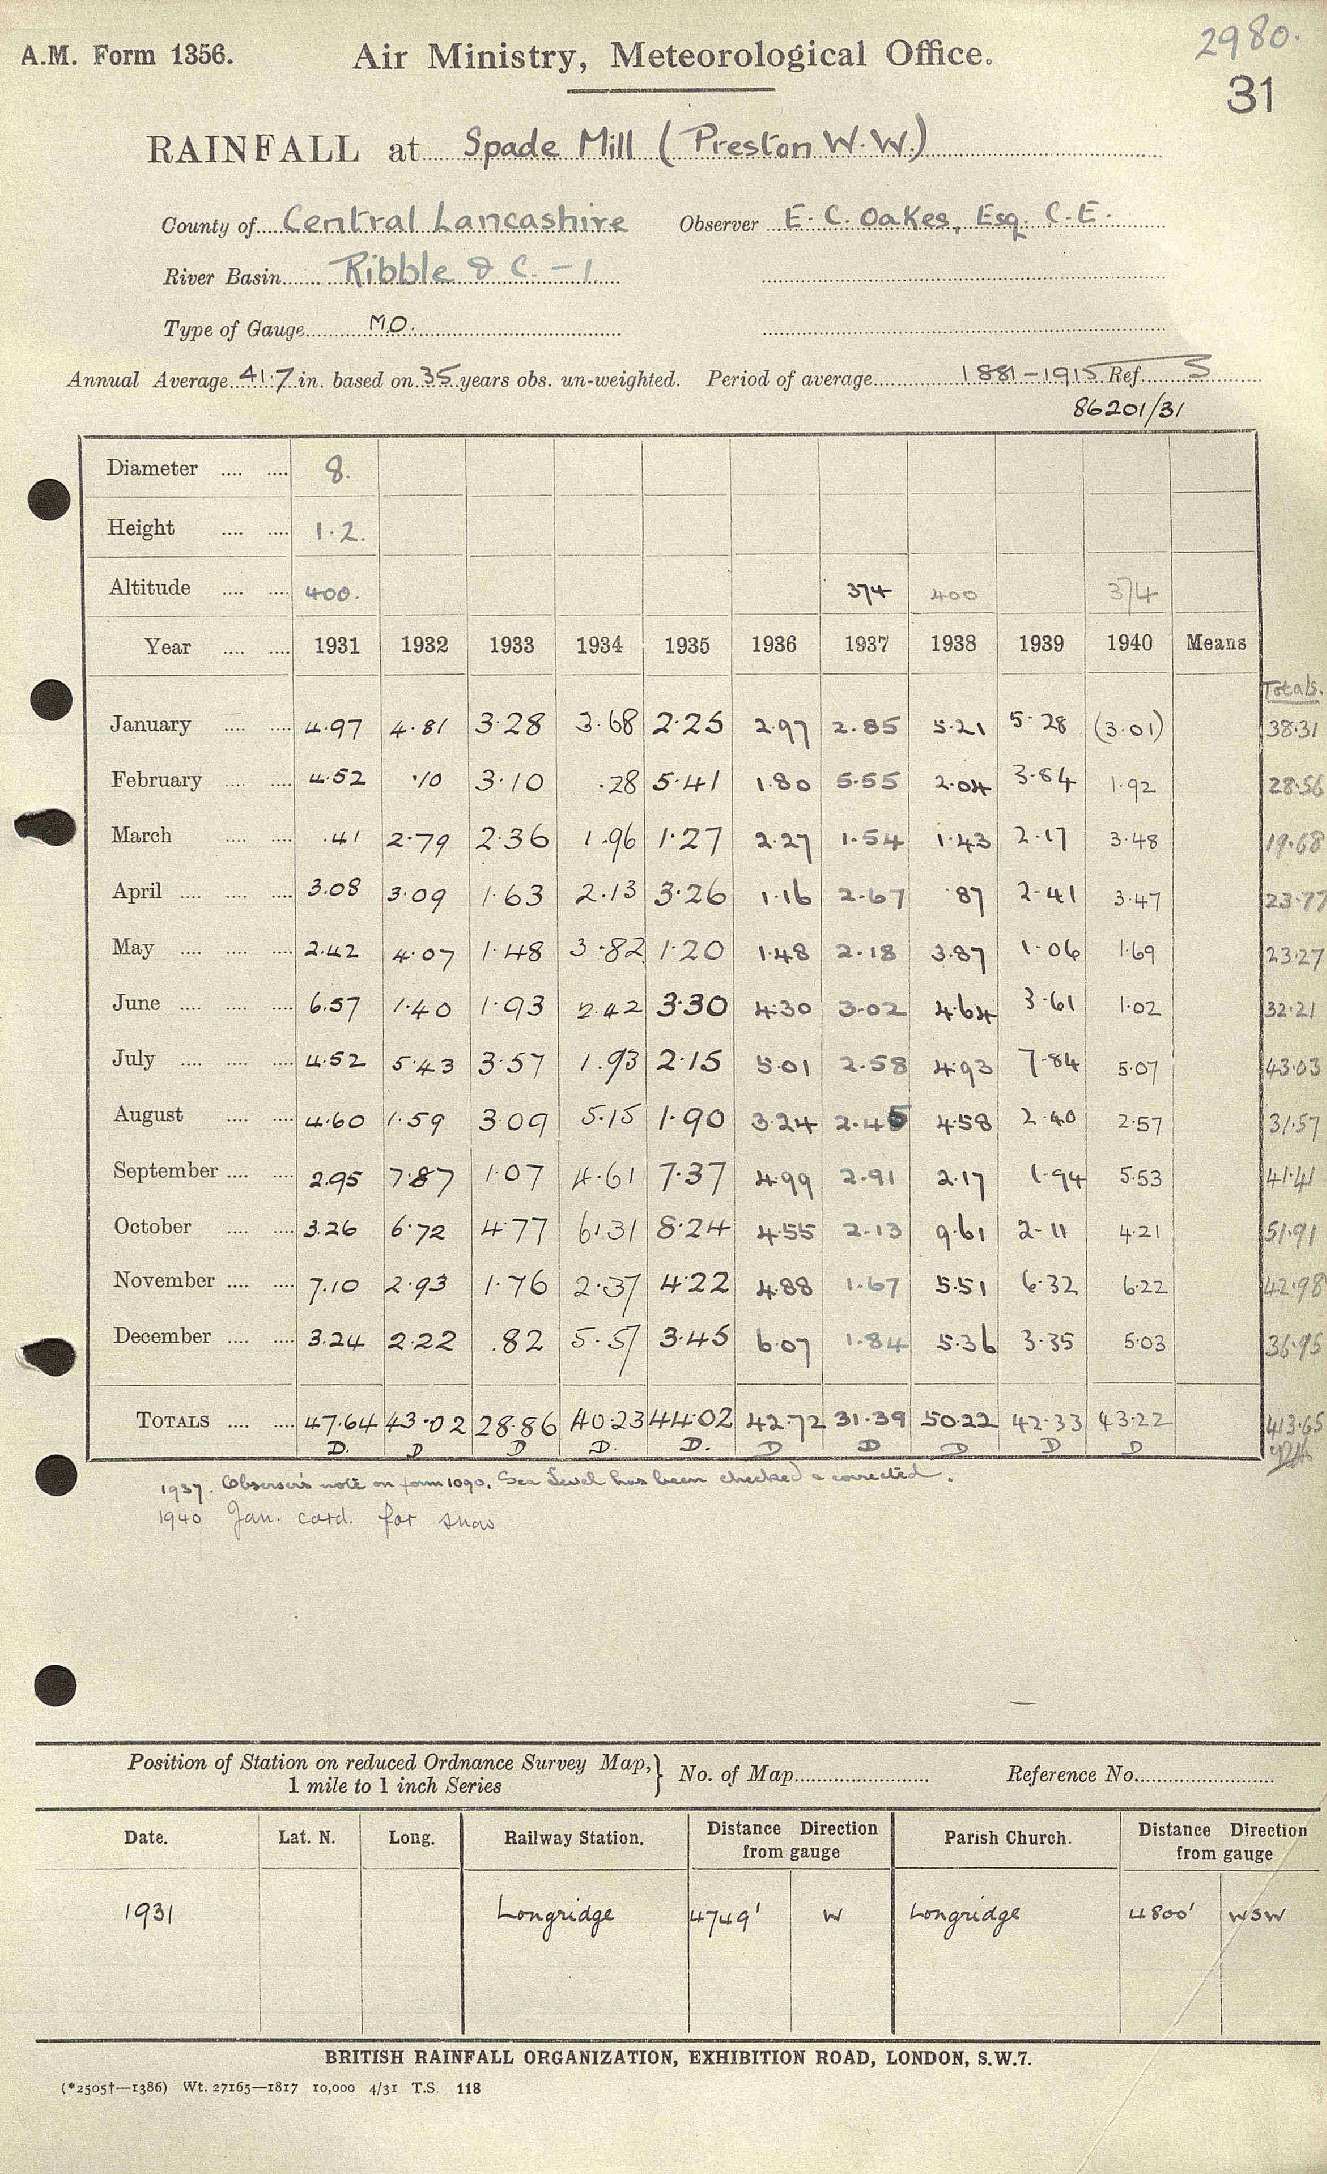 2980.
A.M. Form 1356. Air Ministry, Meteorological Office.
31
RAINFALL at Spade Mill (Preston W.W.)
County of Central Lancashire Observer E. C. Oakes, Esq. C.E.
River Basin Ribble & C. - 1.
Type of Gauge M.O.
Annual Average 41.7 in. based on 35 years obs. un-weighted. Period of average 1881-1915 Ref. S
86201/31
Diameter 8.
Height 1.2.
Altitude 400. 374 400 374
Year 1931 1932 1933 1934 1935 1936 1937 1938 1939 1940 Means
Totals.
January 4.97 4.81 3.28 3.68 2.25 2.97 2.85 5.21 5.28 (3.01) 38.31
February 4.52 .10 3.10 .28 5.41 1.80 5.55 2.04 3.84 1.92 28.56
March .41 2.79 2.36 1.96 1.27 2.27 1.54 1.43 2.17 3.48 19.68
April 3.08 3.09 1.63 2.13 3.26 1.16 2.67 .87 2.41 3.47 23.77
May 2.42 4.07 1.48 3.82 1.20 1.48 2.18 3.87 1.06 1.69 23.27
June 6.57 1.40 1.93 2.42 3.30 4.30 3.02 4.64 3.61 1.02 32.21
July 4.52 5.43 3.57 1.93 2.15 5.01 2.58 4.93 7.84 5.07 43.03
August 4.60 1.59 3.09 5.15 1.90 3.24 2.45 4.58 2.40 2.57 31.57
September 2.95 7.87 1.07 4.61 7.37 4.99 2.91 2.17 1.94 5.53 41.41
October 3.26 6.72 4.77 6.31 8.24 4.55 2.13 9.61 2.11 4.21 51.91
November 7.10 2.93 1.76 2.37 4.22 4.88 1.67 5.51 6.32 6.22 42.98
December 3.24 2.22 .82 5.57 3.45 6.07 1.84 5.36 3.35 5.03 36.95
TOTALS 47.64 43.02 28.86 40.23 44.02 42.72 31.39 50.22 42.33 43.22 413.65
D. D D D. D. D D D D D
1937. Observer's note on form 1090. Sea Level has been checked & corrected.
1940 Jan. card. for snow
Position of Station on reduced Ordnance Survey Map, 1 mile to 1 inch Series } No. of Map Reference No.
Date. Lat. N. Long. Railway Station. Distance Direction from gauge Parish Church. Distance Direction from gauge
1931 Longridge 4749' W Longridge 4800' WSW
BRITISH RAINFALL ORGANIZATION, EXHIBITION ROAD, LONDON, S.W.7.
(*2505†—1386) Wt. 27165—1817 10,000 4/31 T.S. 118